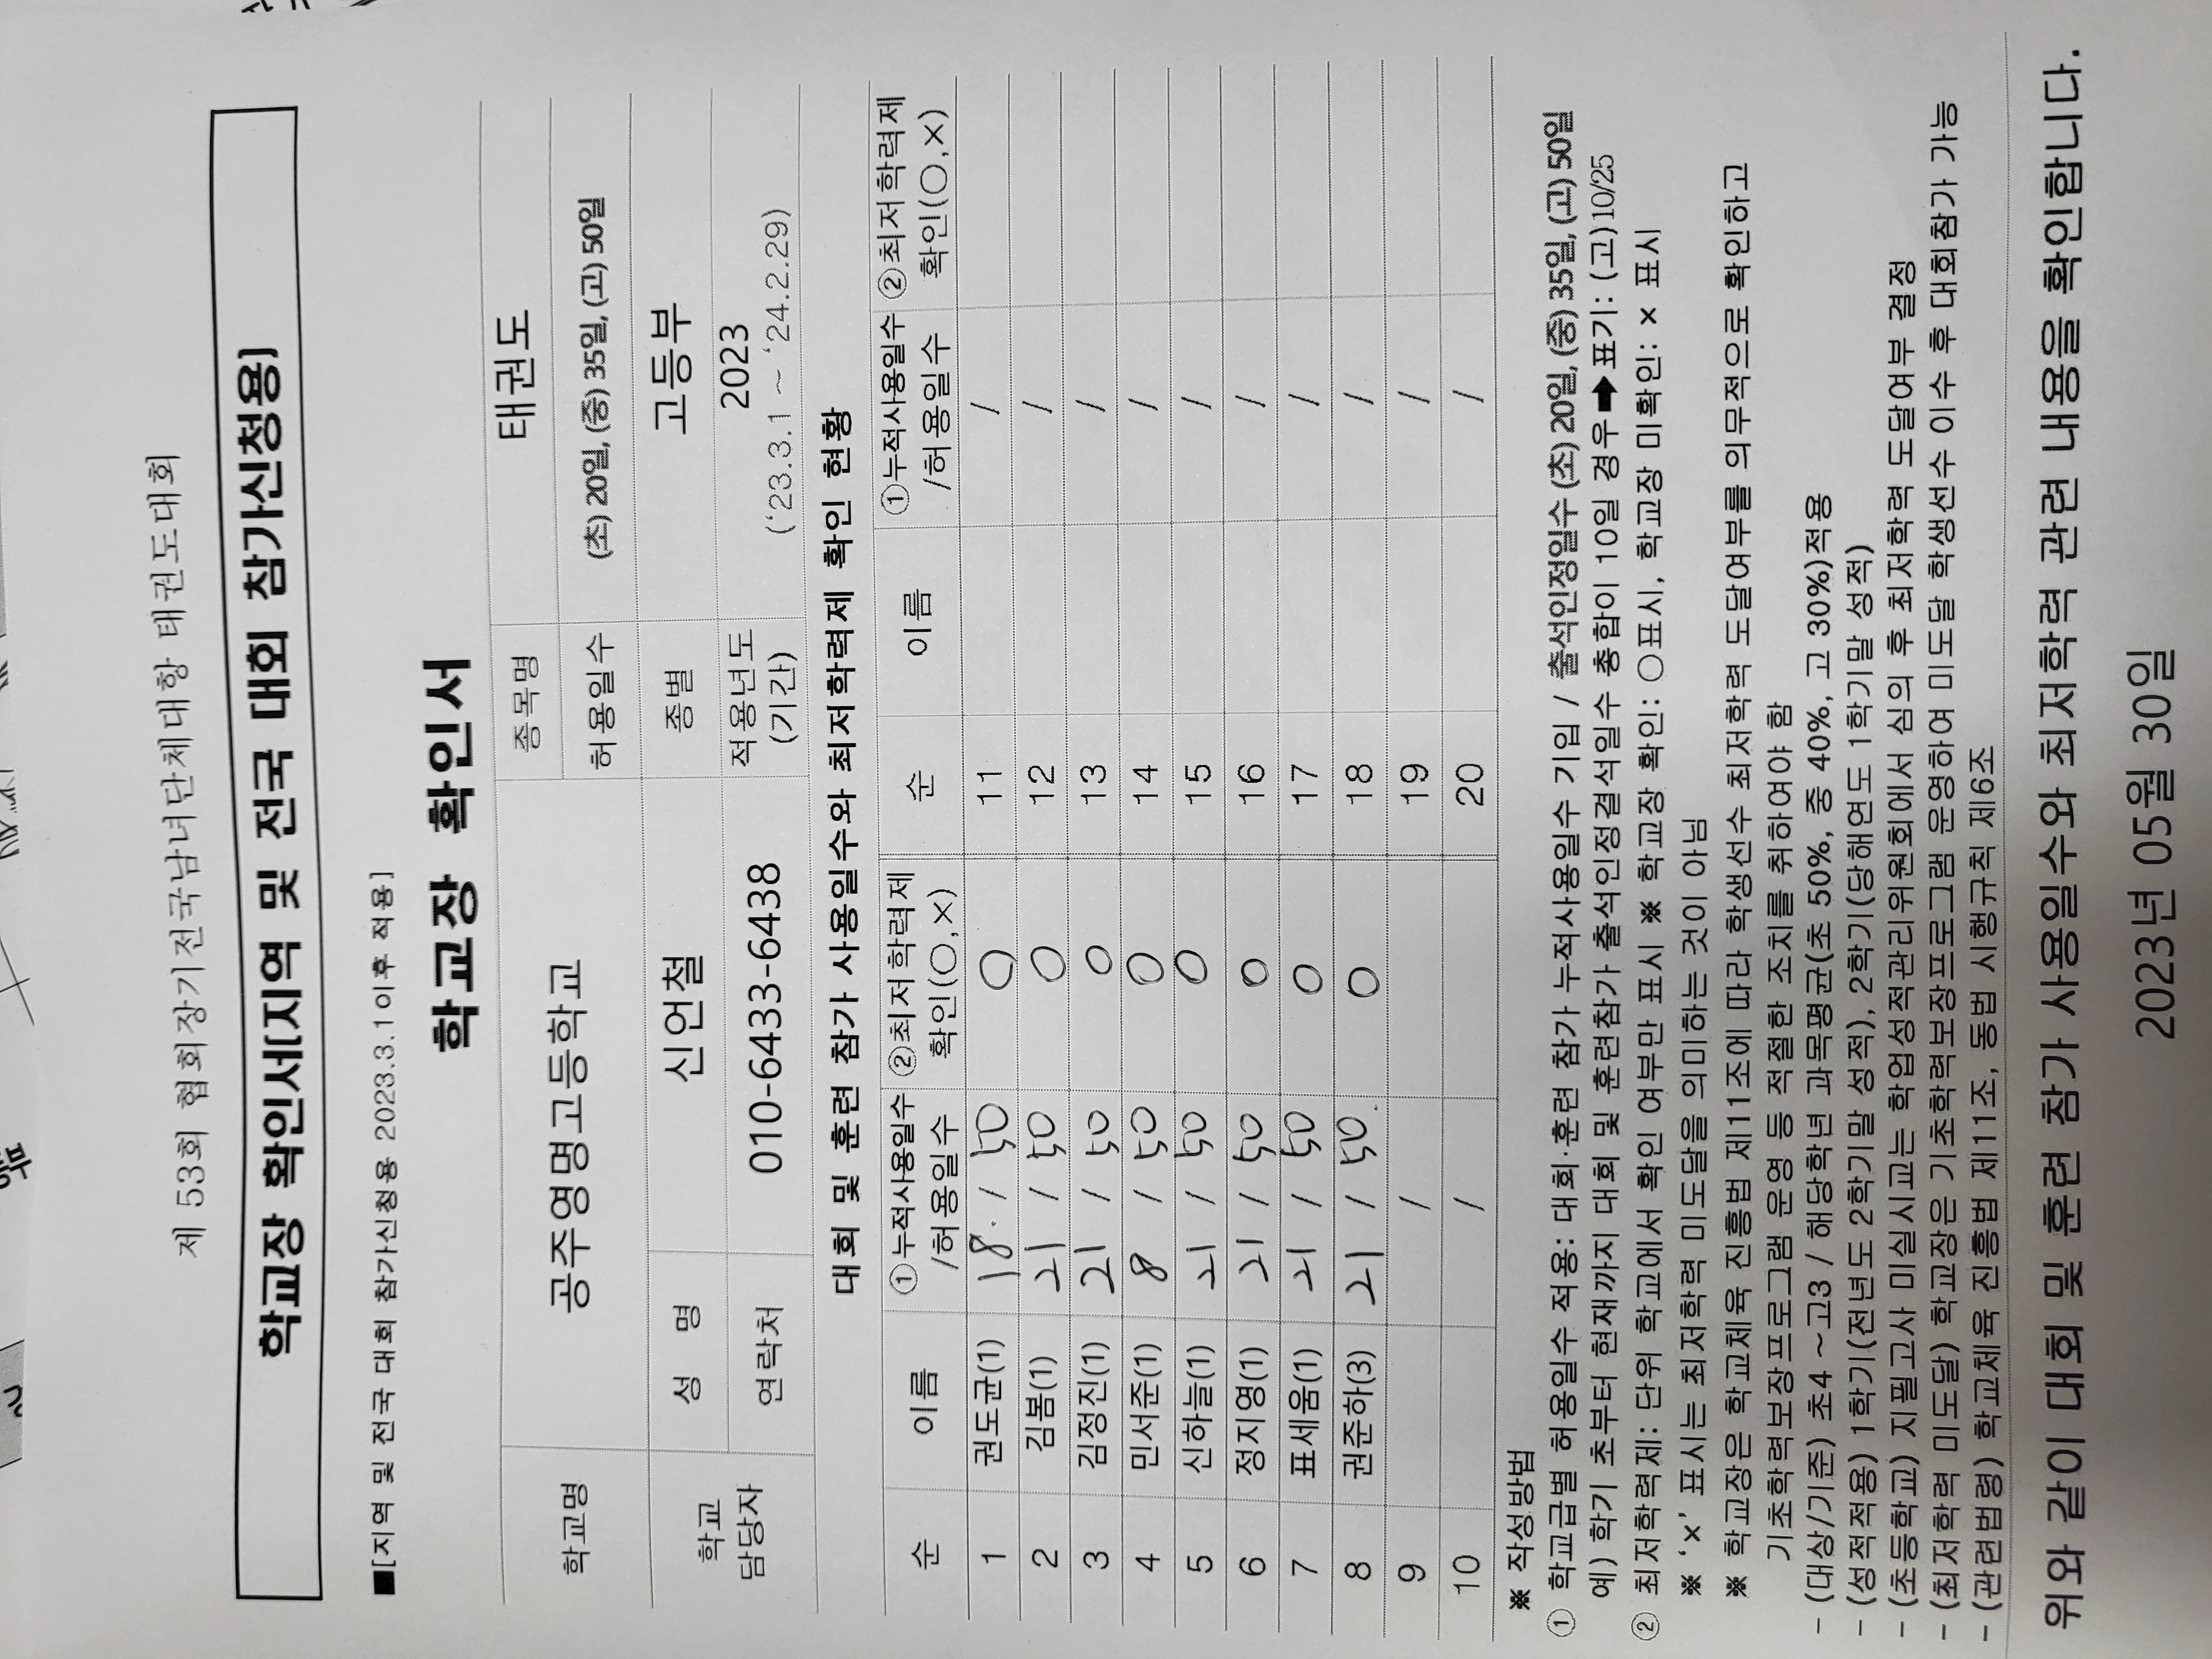 제 53회 협회장기전국남녀단체대항 태권도대회
학교장 확인서[지역 및 전국 대회 참가신청용]
■[지역 및 전국 대회 참가신청용 2023.3.1이후 적용]
학교장 확인서
학교명 공주영명고등학교 종목명 태권도
허용일수 (초) 20일, (중) 35일, (고) 50일
학교 담당자 성 명 신언철 종별 고등부
연락처 010-6433-6438 적용년도 (기간) 2023
('23.3.1 ~ '24.2.29)
대회 및 훈련 참가 사용일수와 최저학력제 확인 현황
순 이름 ①누적사용일수 /허용일수 ②최저학력제 확인(○,×) 순 이름 ①누적사용일수 /허용일수 ②최저학력제 확인(○,×)
1 권도균(1) 18. / 50 ○ 11 /
2 김봄(1) 21 / 50 ○ 12 /
3 김정진(1) 21 / 50 ○ 13 /
4 민서준(1) 8 / 50 ○ 14 /
5 신하늘(1) 21 / 50 ○ 15 /
6 정지영(1) 21 / 50 ○ 16 /
7 표세움(1) 21 / 50 ○ 17 /
8 권준하(3) 21 / 50. ○ 18 /
9 / 19 /
10 / 20 /
※ 작성방법
① 학교급별 허용일수 적용: 대회·훈련 참가 누적사용일수 기입 / 출석인정일수 (초) 20일, (중) 35일, (고) 50일
예) 학기 초부터 현재까지 대회 및 훈련참가 출석인정결석일수 총합이 10일 경우 ➡ 표기: (고)10/25
② 최저학력제: 단위 학교에서 확인 여부만 표시 ※ 학교장 확인: ○표시, 학교장 미확인: × 표시
※ '×' 표시는 최저학력 미도달을 의미하는 것이 아님
※ 학교장은 학교체육 진흥법 제11조에 따라 학생선수 최저학력 도달여부를 의무적으로 확인하고
기초학력보장프로그램 운영 등 적절한 조치를 취하여야 함
- (대상/기준) 초4 ~고3 / 해당학년 과목평균(초 50%, 중 40%, 고 30%)적용
- (성적적용) 1학기(전년도 2학기말 성적), 2학기(당해연도 1학기말 성적)
- (초등학교) 지필고사 미실시교는 학업성적관리위원회에서 심의 후 최저학력 도달여부 결정
- (최저학력 미도달) 학교장은 기초학력보장프로그램 운영하여 미도달 학생선수 이수 후 대회참가 가능
- (관련법령) 학교체육 진흥법 제11조, 동법 시행규칙 제6조
위와 같이 대회 및 훈련 참가 사용일수와 최저학력 관련 내용을 확인합니다.
2023년 05월 30일